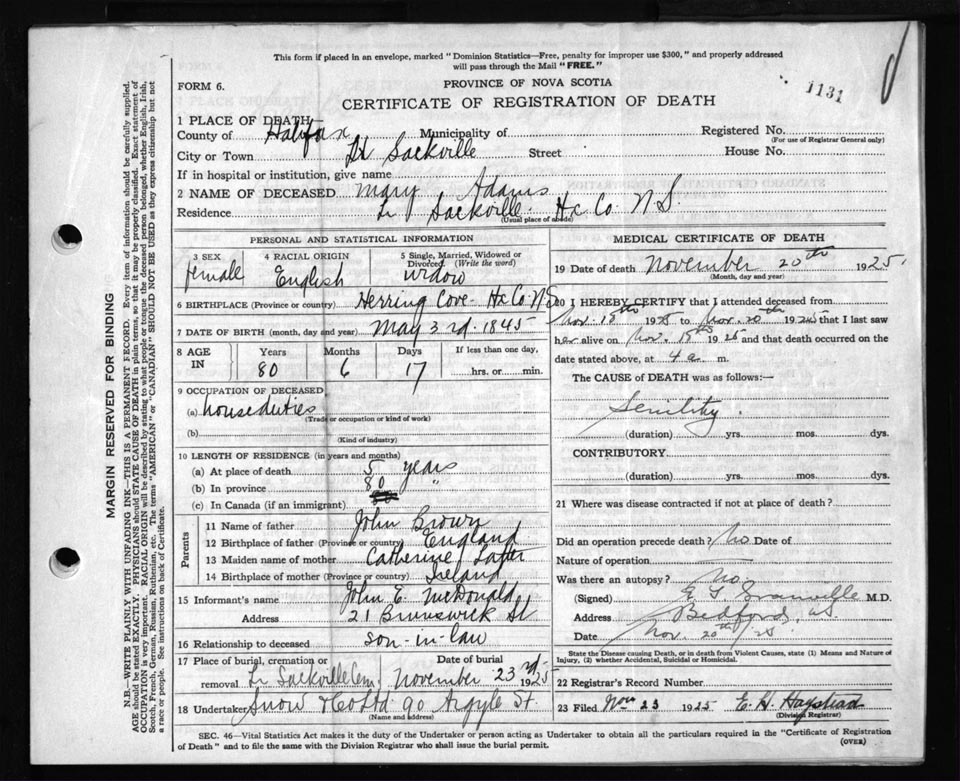 This form if placed in an envelope, marked "Dominion Statistics—Free, penalty for improper use $300," and properly addressed
will pass through the Mail "FREE."
1131
FORM 6.
PROVINCE OF NOVA SCOTIA
CERTIFICATE OF REGISTRATION OF DEATH
1 PLACE OF DEATH—
County of Halifax Municipality of Registered No.
(For use of Registrar General only)
City or Town Lr Sackville Street House No.
If in hospital or institution, give name
2 NAME OF DECEASED Mary Adams
Residence Lr Sackville Hx Co N S.
(Usual place of abode)
PERSONAL AND STATISTICAL INFORMATION
3 SEX female
4 RACIAL ORIGIN English
5 Single, Married, Widowed or Divorced (Write the word) widow
6 BIRTHPLACE (Province or country) Herring Cove - Hx Co. N S
7 DATE OF BIRTH (month, day and year) May 3rd. 1845
8 AGE IN Years 80 Months 6 Days 17 If less than one day, hrs. or min.
9 OCCUPATION OF DECEASED
(a) house duties
(Trade or occupation or kind of work)
(b)
(Kind of industry)
10 LENGTH OF RESIDENCE (in years and months)
(a) At place of death 5 years
(b) In province 80 "
(c) In Canada (if an immigrant)
Parents
11 Name of father John Brown
12 Birthplace of father (Province or country) England
13 Maiden name of mother Catherine
14 Birthplace of mother (Province or country) Ireland
15 Informant's name John E. McDonald
Address 21 Brunswick St
16 Relationship to deceased son-in-law
17 Place of burial, cremation or removal Lr Sackville Cem Date of burial November 23rd 1925
18 Undertaker Snow & Co Ltd 90 Argyle St.
(Name and address)
MEDICAL CERTIFICATE OF DEATH
19 Date of death November 20th 1925.
(Month, day and year)
20 I HEREBY CERTIFY that I attended deceased from
Nov. 18th 1925 to Nov. 20th 1925 that I last saw
her alive on Nov. 18th 1925 and that death occurred on the
date stated above, at 4 a. m.
The CAUSE of DEATH was as follows:—
Senility.
(duration) yrs. mos. dys.
CONTRIBUTORY
(duration) yrs. mos. dys.
21 Where was disease contracted if not at place of death?
Did an operation precede death? No Date of
Nature of operation
Was there an autopsy? No.
(Signed) M.D.
Address Bedford,
Date Nov. 20th /25
State the Disease causing Death, or in death from Violent Causes, state (1) Means and Nature of
Injury, (2) whether Accidental, Suicidal or Homicidal.
22 Registrar's Record Number
23 Filed Nov 23 1925 E. H.
(Division Registrar)
SEC. 46—Vital Statistics Act makes it the duty of the Undertaker or person acting as Undertaker to obtain all the particulars required in the "Certificate of Registration
of Death" and to file the same with the Division Registrar who shall issue the burial permit.
(OVER)
MARGIN RESERVED FOR BINDING
N.B.—WRITE PLAINLY WITH UNFADING INK—THIS IS A PERMANENT RECORD. Every item of information should be carefully supplied.
AGE should be stated EXACTLY. PHYSICIANS should STATE CAUSE OF DEATH in plain terms, so that it may be properly classified. Exact statement of
OCCUPATION is very important. RACIAL ORIGIN will be described by stating to what people or tongue the deceased person belonged, whether English, Irish,
Scotch, French, German, Russian, Ruthenian, etc. The terms "AMERICAN" or "CANADIAN" SHOULD NOT BE USED as they express citizenship but not
a race or people. See instructions on back of Certificate.